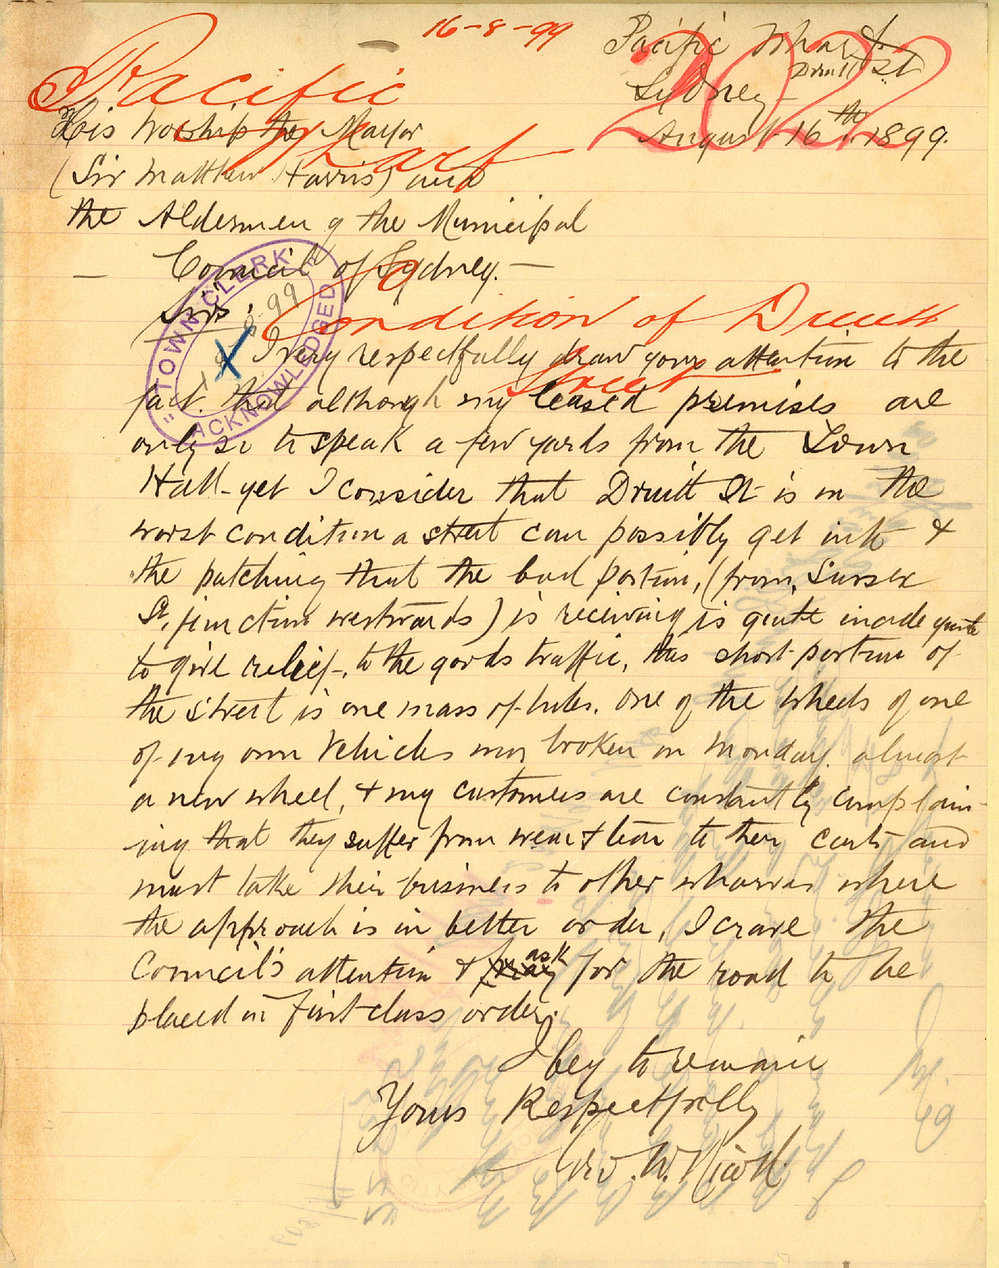 16-8-99
Pacific Wharf
Druitt St
Sydney
2022
August 16th. 1899.
Pacific
Wharf
His Worship the Mayor
(Sir Matthew Harris) and
the Aldermen of the Municipal
Council of Sydney. —
Condition of Druitt
Street
TOWN CLERK
ACKNOWLEDGED
I very respectfully draw your attention to the
fact. that although my leased premises are
only so to speak a few yards from the Town
Hall - yet I consider that Druitt St is in the
worst condition a street can possibly get into &
the patching that the bad portion, (from, Sussex
St, junction westwards) is receiving is quite inadequate
to give relief, to the goods traffic, this short portion of
the street is one mass of holes. One of the wheels of one
of my own vehicles was broken on Monday. almost
a new wheel, & my customers are constantly complain-
ing that they suffer from wear & tear to their carts and
must take their business to other wharves where
the approach is in better order, I crave the
Council's attention & ask for the road to be
placed in first class order.
I beg to remain
Yours Respectfully
W.